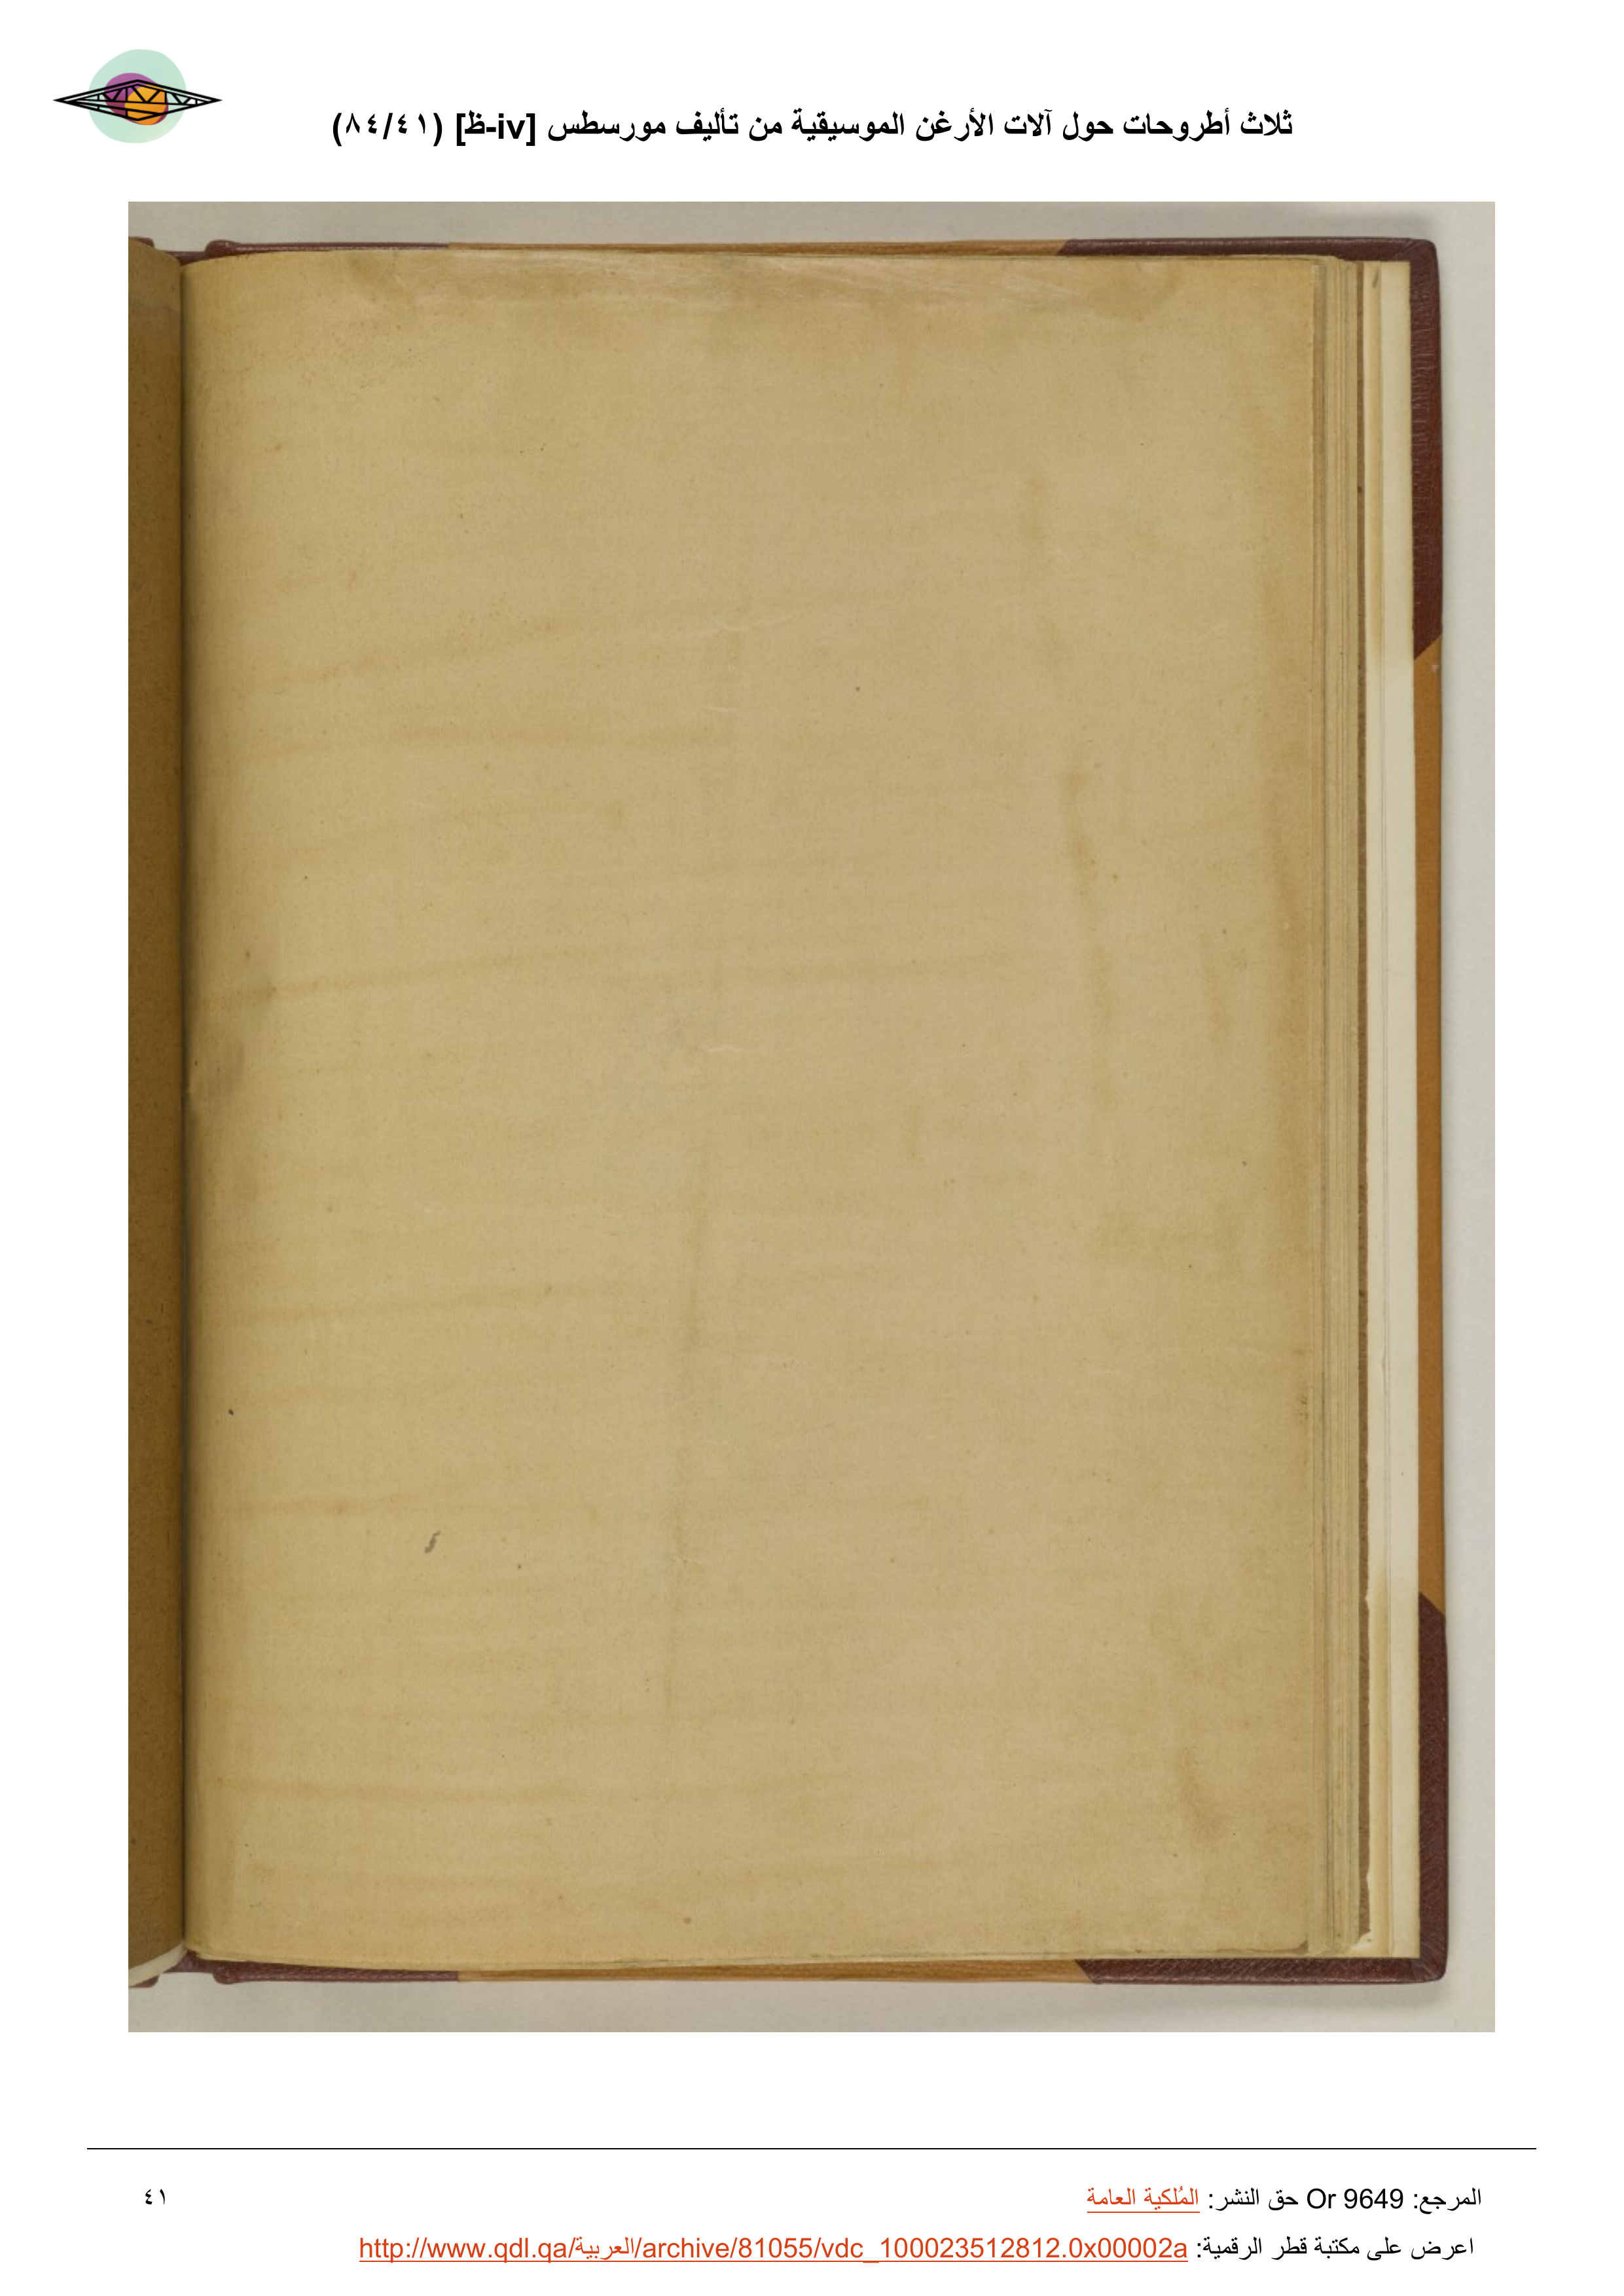 ثلاث أطروحات حول آلات الأرغن الموسيقية من تأليف مورسطس [iv-ظ] (٨٤/٤١)
المرجع: Or 9649 حق النشر: المُلكية العامة
٤١
اعرض على مكتبة قطر الرقمية: http://www.qdl.qa/العربية/archive/81055/vdc_100023512812.0x00002a